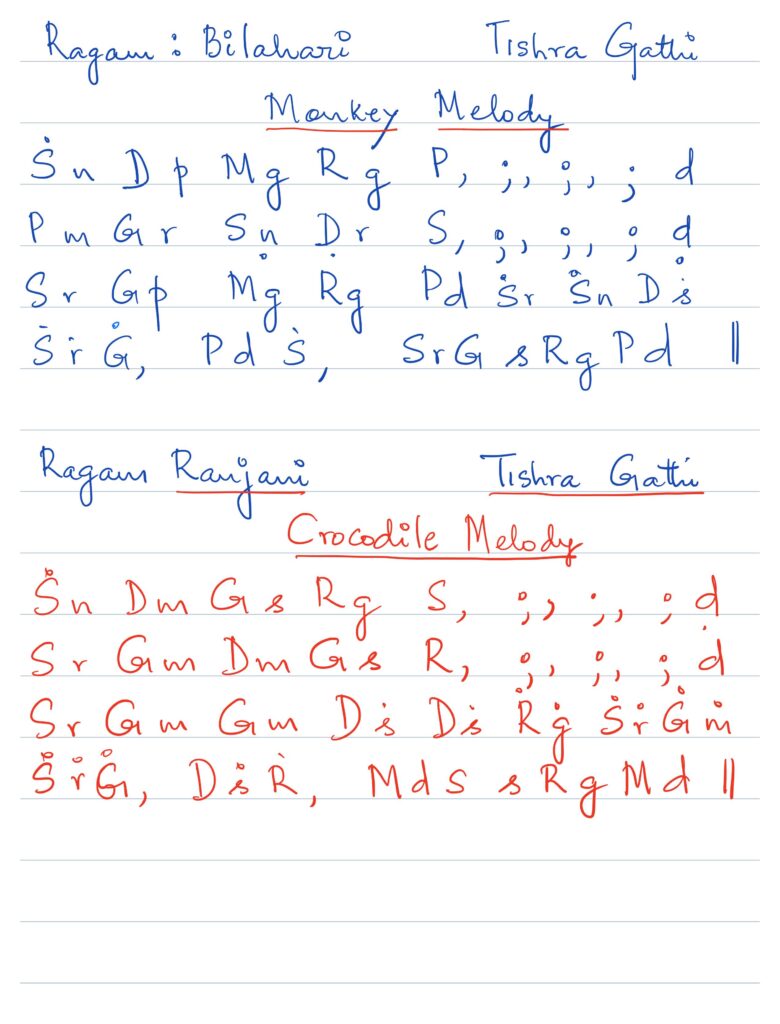 Ragam : Bilahari Tishra Gathi
Monkey Melody
Ṡ n D p M g R g P, ;, ;, ; d
P m G r S n D r S, ;, ;, ; d
S r G p Ṁ g Ṙ g P d Ṡ r Ṡ n Ḋ ṡ
Ṡ ṙ Ġ, P d Ṡ, S r G s R g P d ||
Ragam Ranjani Tishra Gathi
Crocodile Melody
Ṡ n D m G s R g S, ;, ;, ; d
S r G m D m G s R, ;, ;, ; ḋ
S r G m G m D ṡ D ṡ Ṙ ġ Ṡ ṙ Ġ ṁ
Ṡ ṙ Ġ, D ṡ Ṙ, M d S s R g M d ||